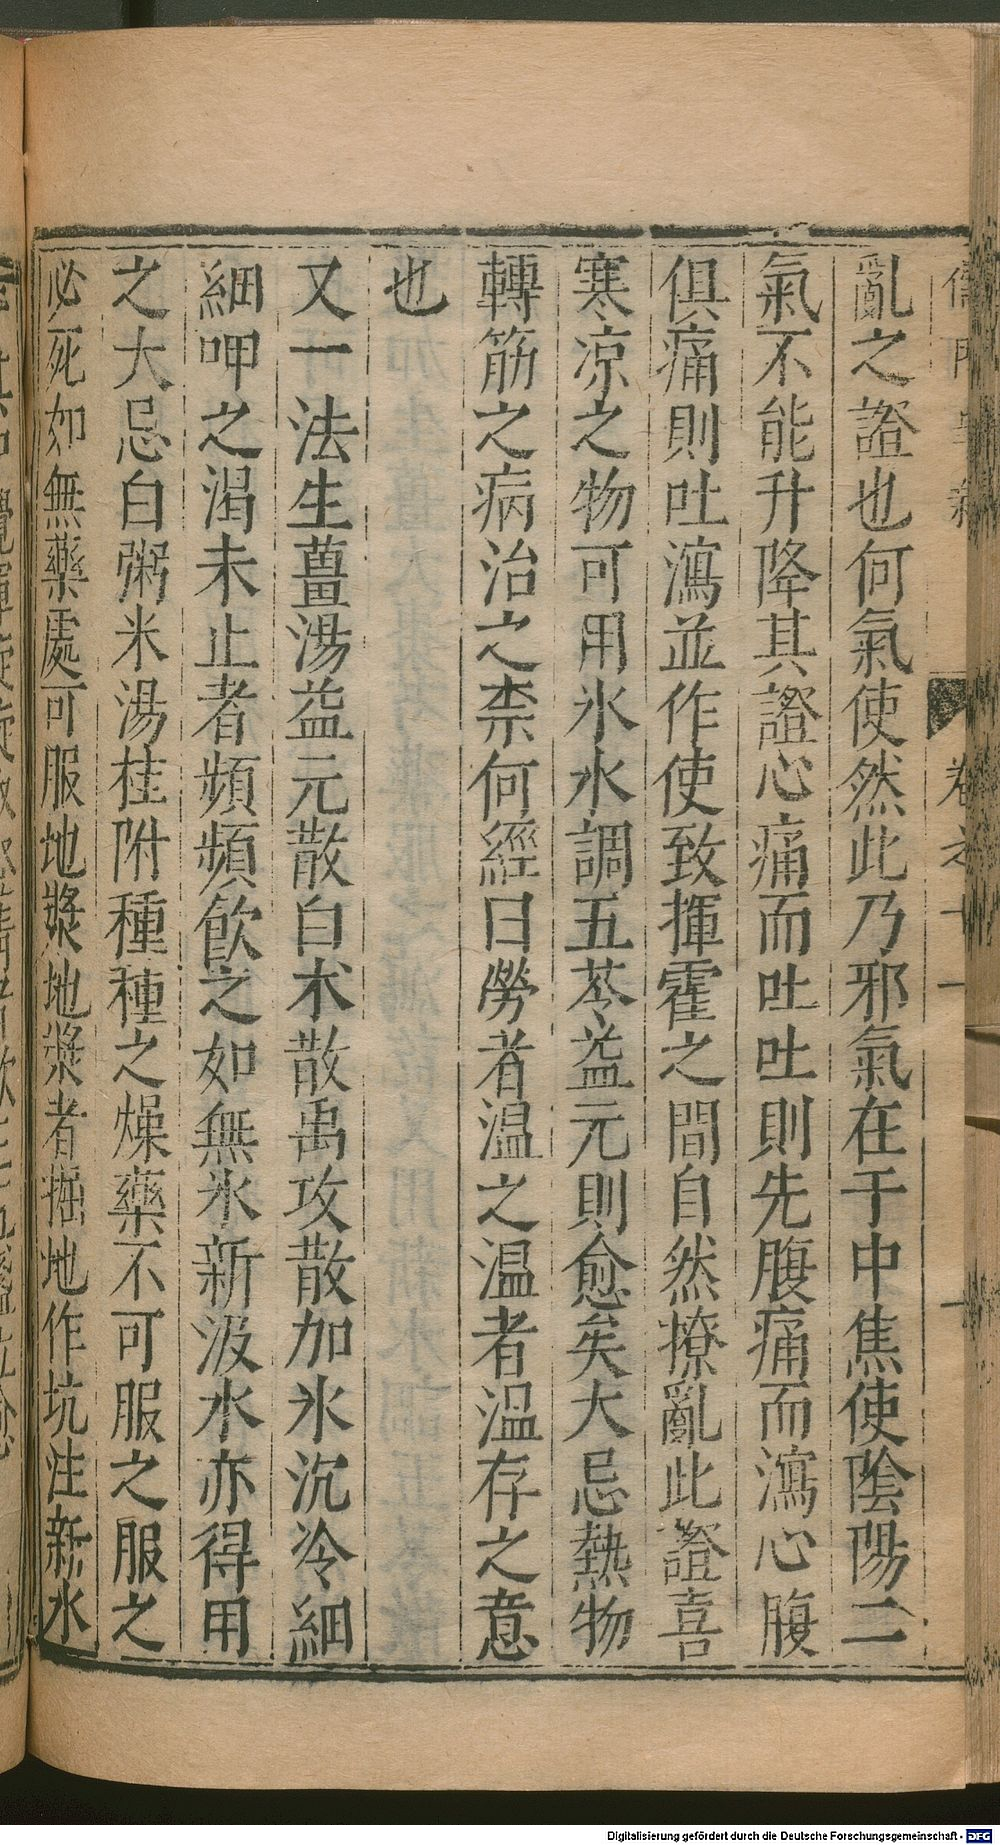 亂之證也何氣使然此乃邪氣在于中焦使陰陽二
氣不能升降其證心痛而吐吐則先腹痛而瀉心腹
俱痛則吐瀉並作使致揮霍之間自然撩亂此證喜
寒凉之物可用氷水調五苓益元則愈矣大忌熱物
轉筋之病治之柰何經曰勞者溫之溫者溫存之意
也
又一法生薑湯益元散白朮散禹攻散加氷沉冷細
細呷之渴未止者頻頻飲之如無氷新汲水亦得用
之大忌白粥米湯桂附種種之燥藥不可服之服之
必死如無藥處可服地漿地漿者掘地作坑注新水
Digitalisierung gefördert durch die Deutsche Forschungsgemeinschaft - DFG